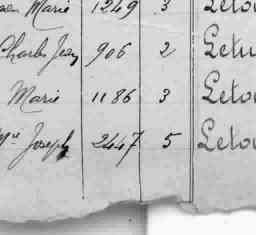 Marie 1249 3 Leto
Charles Jean 906 2 Letu
Marie 1186 3 Leto
Joseph 2447 5 Leto